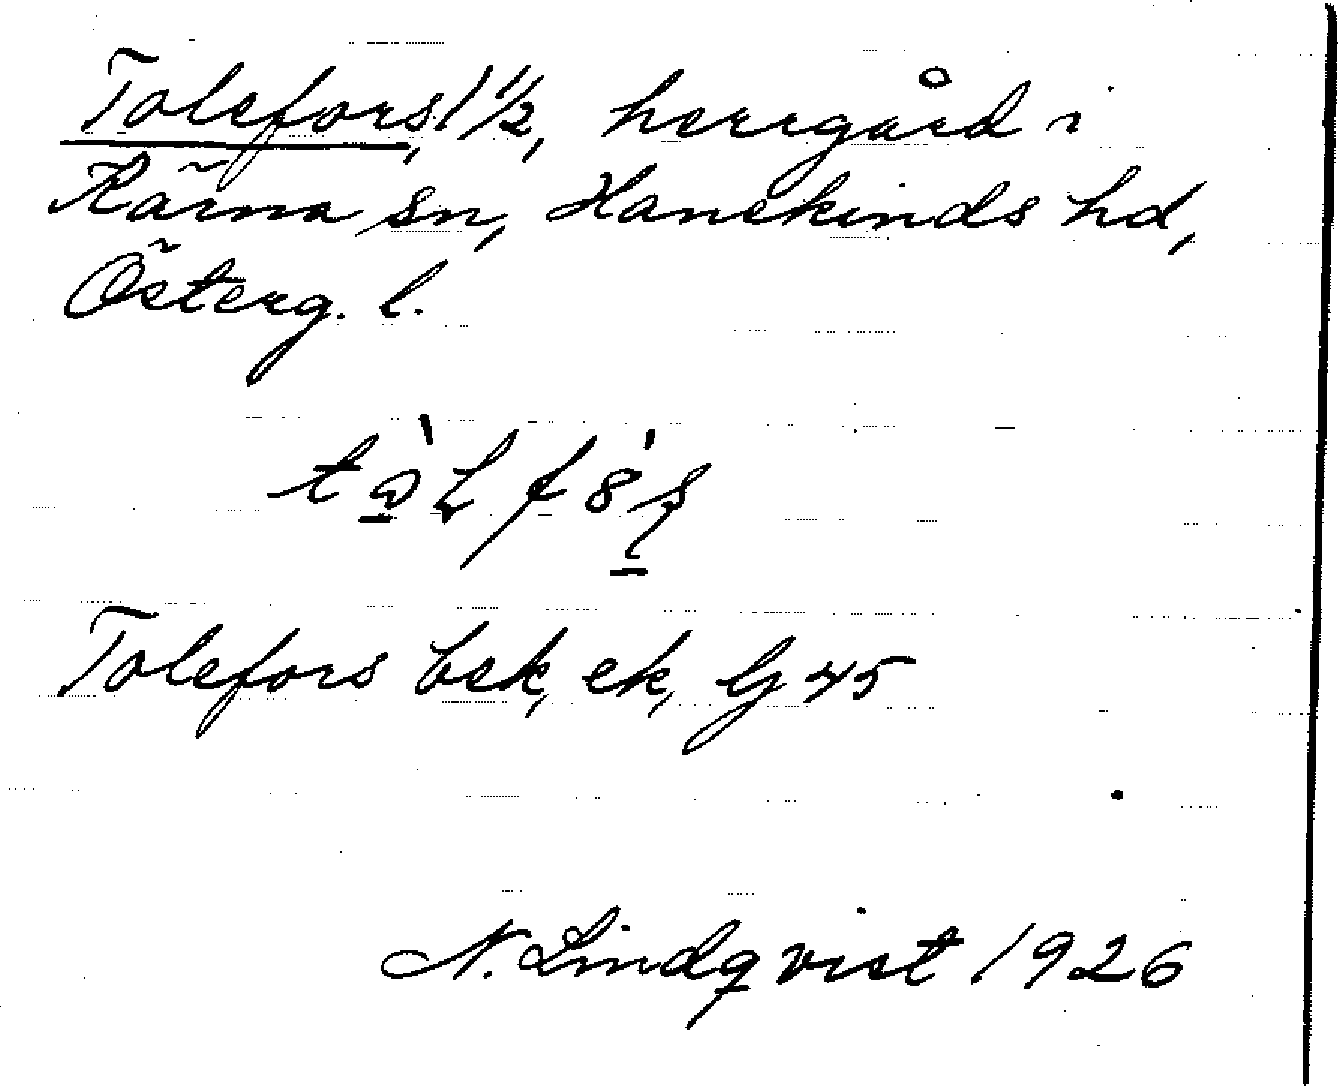 Tolefors, 1 1/2, herrgård i
Kärna sn, Hanekinds hd,
Österg. l.
Tolefors bek, ek, Gj 45
N. Lindqvist 1926